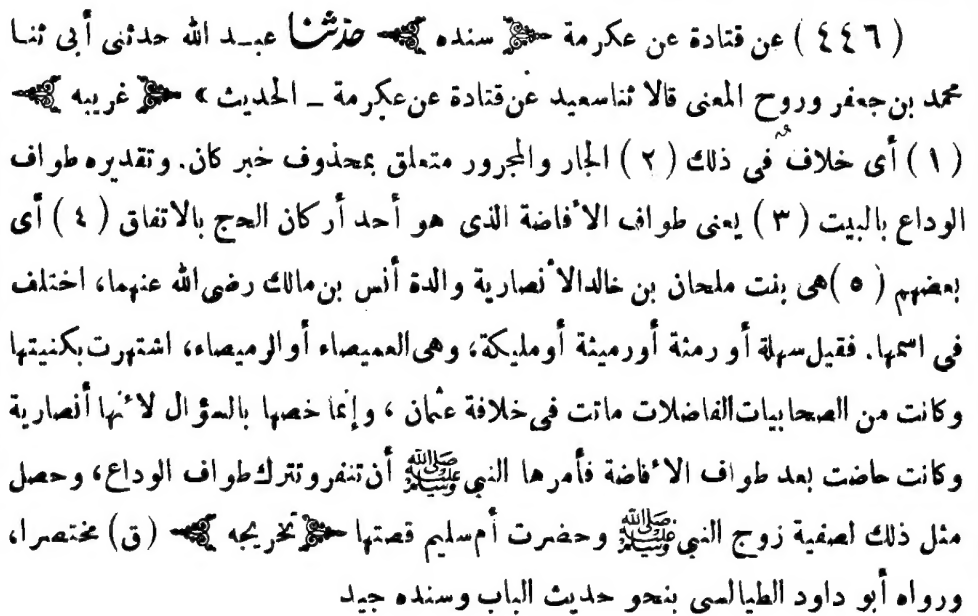 ( ٤٤٦ ) عن قتادة عن عكرمة ﴿ سنده ﴾ حدّثنا عبد الله حدثنى أبى ثنا
محمد بن جعفر وروح المعنى قالا ثنا سعيد عن قتادة عن عكرمة ــ الحديث » ﴿ غريبه ﴾
( ١ ) أى خلاف فى ذلك ( ٢ ) الجار والمجرور متعلق بمحذوف خبر كان. وتقديره طواف
الوداع بالبيت ( ٣ ) يعنى طواف الأفاضة الذى هو أحد أركان الحج بالاتفاق ( ٤ ) أى
بعضهم ( ٥ ) هى بنت ملحان بن خالد الأنصارية والدة أنس بن مالك رضى الله عنهما، اختلف
فى اسمها. فقيل سهلة أو رمثة أو رميثة أو مليكة، وهى العميصاء أو الرميصاء، اشتهرت بكنيتها
وكانت من الصحابيات الفاضلات ماتت فى خلافة عثمان ، وإنما خصها بالسؤال لأنها أنصارية
وكانت حاضت بعد طواف الأفاضة فأمرها النبى ﷺ أن تنفر وتترك طواف الوداع، وحصل
مثل ذلك لصفية زوج النبى ﷺ وحضرت أم سليم قصتها ﴿ تخريجه ﴾ (ق) مختصرا،
ورواه أبو داود الطيالسى بنحو حديث الباب وسنده جيد